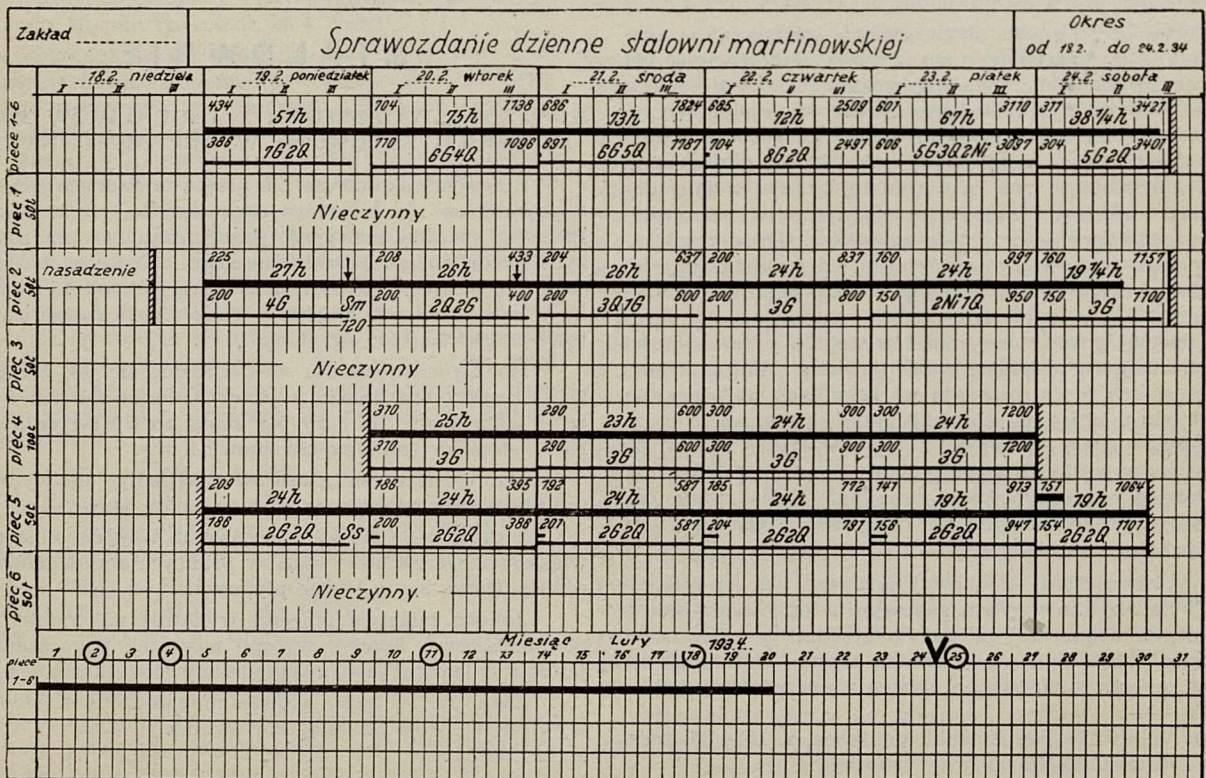 Zakład
Sprawozdanie dzienne stalowni martinowskiej
Okres
od 18 2. do 24.2.34
18.2. niedziela 19.2. poniedziałek 20.2. wtorek 21.2. środa 22.2. czwartek 23.2. piątek 24.2. sobota
I II III I II III I II III I II III I II III I II III I II III
piece 1-6
434 51h 704 75h 1138 686 73h 1824 685 72h 2509 601 67h 3110 311 38 1/4h 3421
386 7G2Q 710 6G4Q 1096 691 6G5Q 1787 704 8G2Q 2491 606 5G3Q2Ni 3097 304 5G2Q 3401
piec 1 50t
Nieczynny
piec 2 50t
nasadzenie 225 27h 208 26h 433 204 26h 637 200 24h 837 160 24h 997 160 19 1/4h 1157
200 4G Sm 200 2Q2G 400 200 3Q1G 600 200 3G 800 150 2Ni1Q 950 150 3G 1100
120
piec 3 50t
Nieczynny
piec 4 100t
310 25h 290 23h 600 300 24h 900 300 24h 1200
310 3G 290 3G 600 300 3G 900 300 3G 1200
piec 5 50t
209 24h 186 24h 395 192 24h 587 185 24h 772 141 19h 913 151 19h 1064
186 2G2Q Ss 200 2G2Q 386 201 2G2Q 587 204 2G2Q 791 156 2G2Q 947 154 2G2Q 1101
piec 6 50t
Nieczynny
Miesiąc Luty 1934.
piece 1 2 3 4 5 6 7 8 9 10 11 12 13 14 15 16 17 18 19 20 21 22 23 24 25 26 27 28 29 30 31
1-6